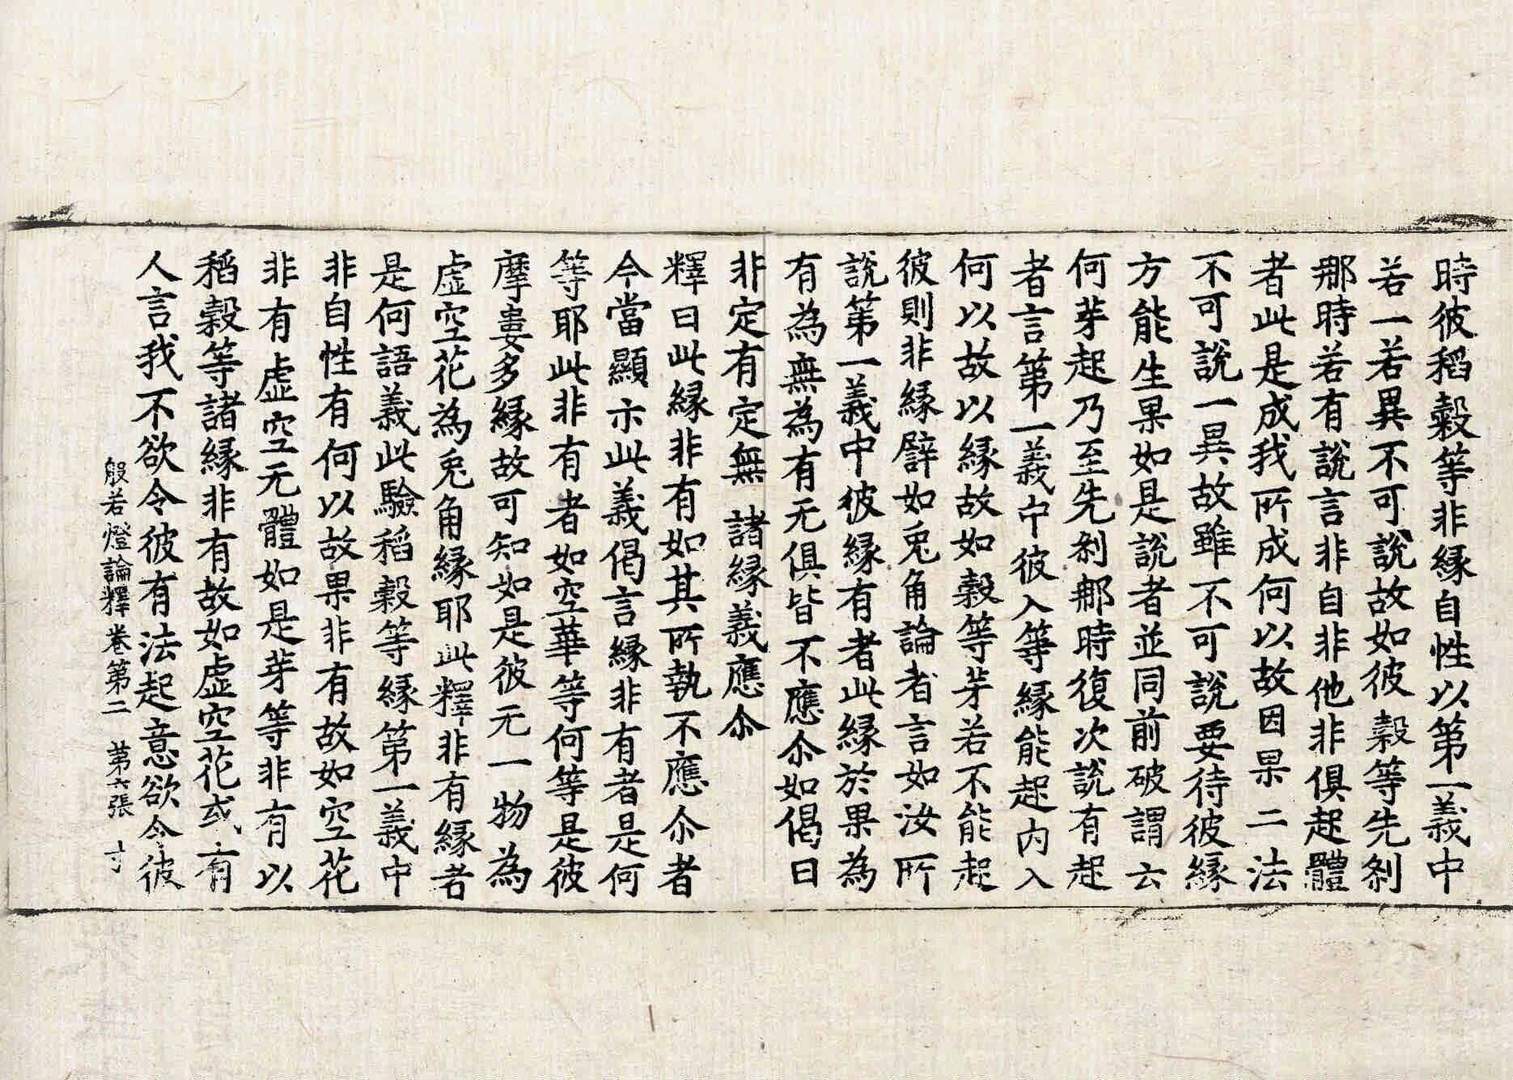 時彼稻穀等非緣自性以第一義中
若一若異不可說故如彼穀等先刹
那時若有說言非自非他非俱起體
者此是成我所成何以故因果二法
不可說一異故雖不可說要待彼緣
方能生果如是說者並同前破謂云
何芽起乃至先刹那時復次說有起
者言第一義中彼入等緣能起内入
何以故以緣故如穀等芽若不能起
彼則非緣譬如兎角論者言如汝所
說第一義中彼緣有者此緣於果為
有為無為有无俱皆不應尒如偈曰
非定有定無 諸緣義應尒
釋曰此緣非有如其所執不應尒者
今當顯示此義偈言緣非有者是何
等耶此非有者如空華等何等是彼
摩婁多緣故可知如是彼无一物為
虛空花為兎角緣耶此釋非有緣者
是何語義此驗稻穀等緣第一義中
非自性有何以故果非有故如空花
非有虛空无體如是芽等非有以
稻穀等諸緣非有故如虛空花或有
人言我不欲令彼有法起意欲令彼
般若燈論釋卷第二 第六張 寸